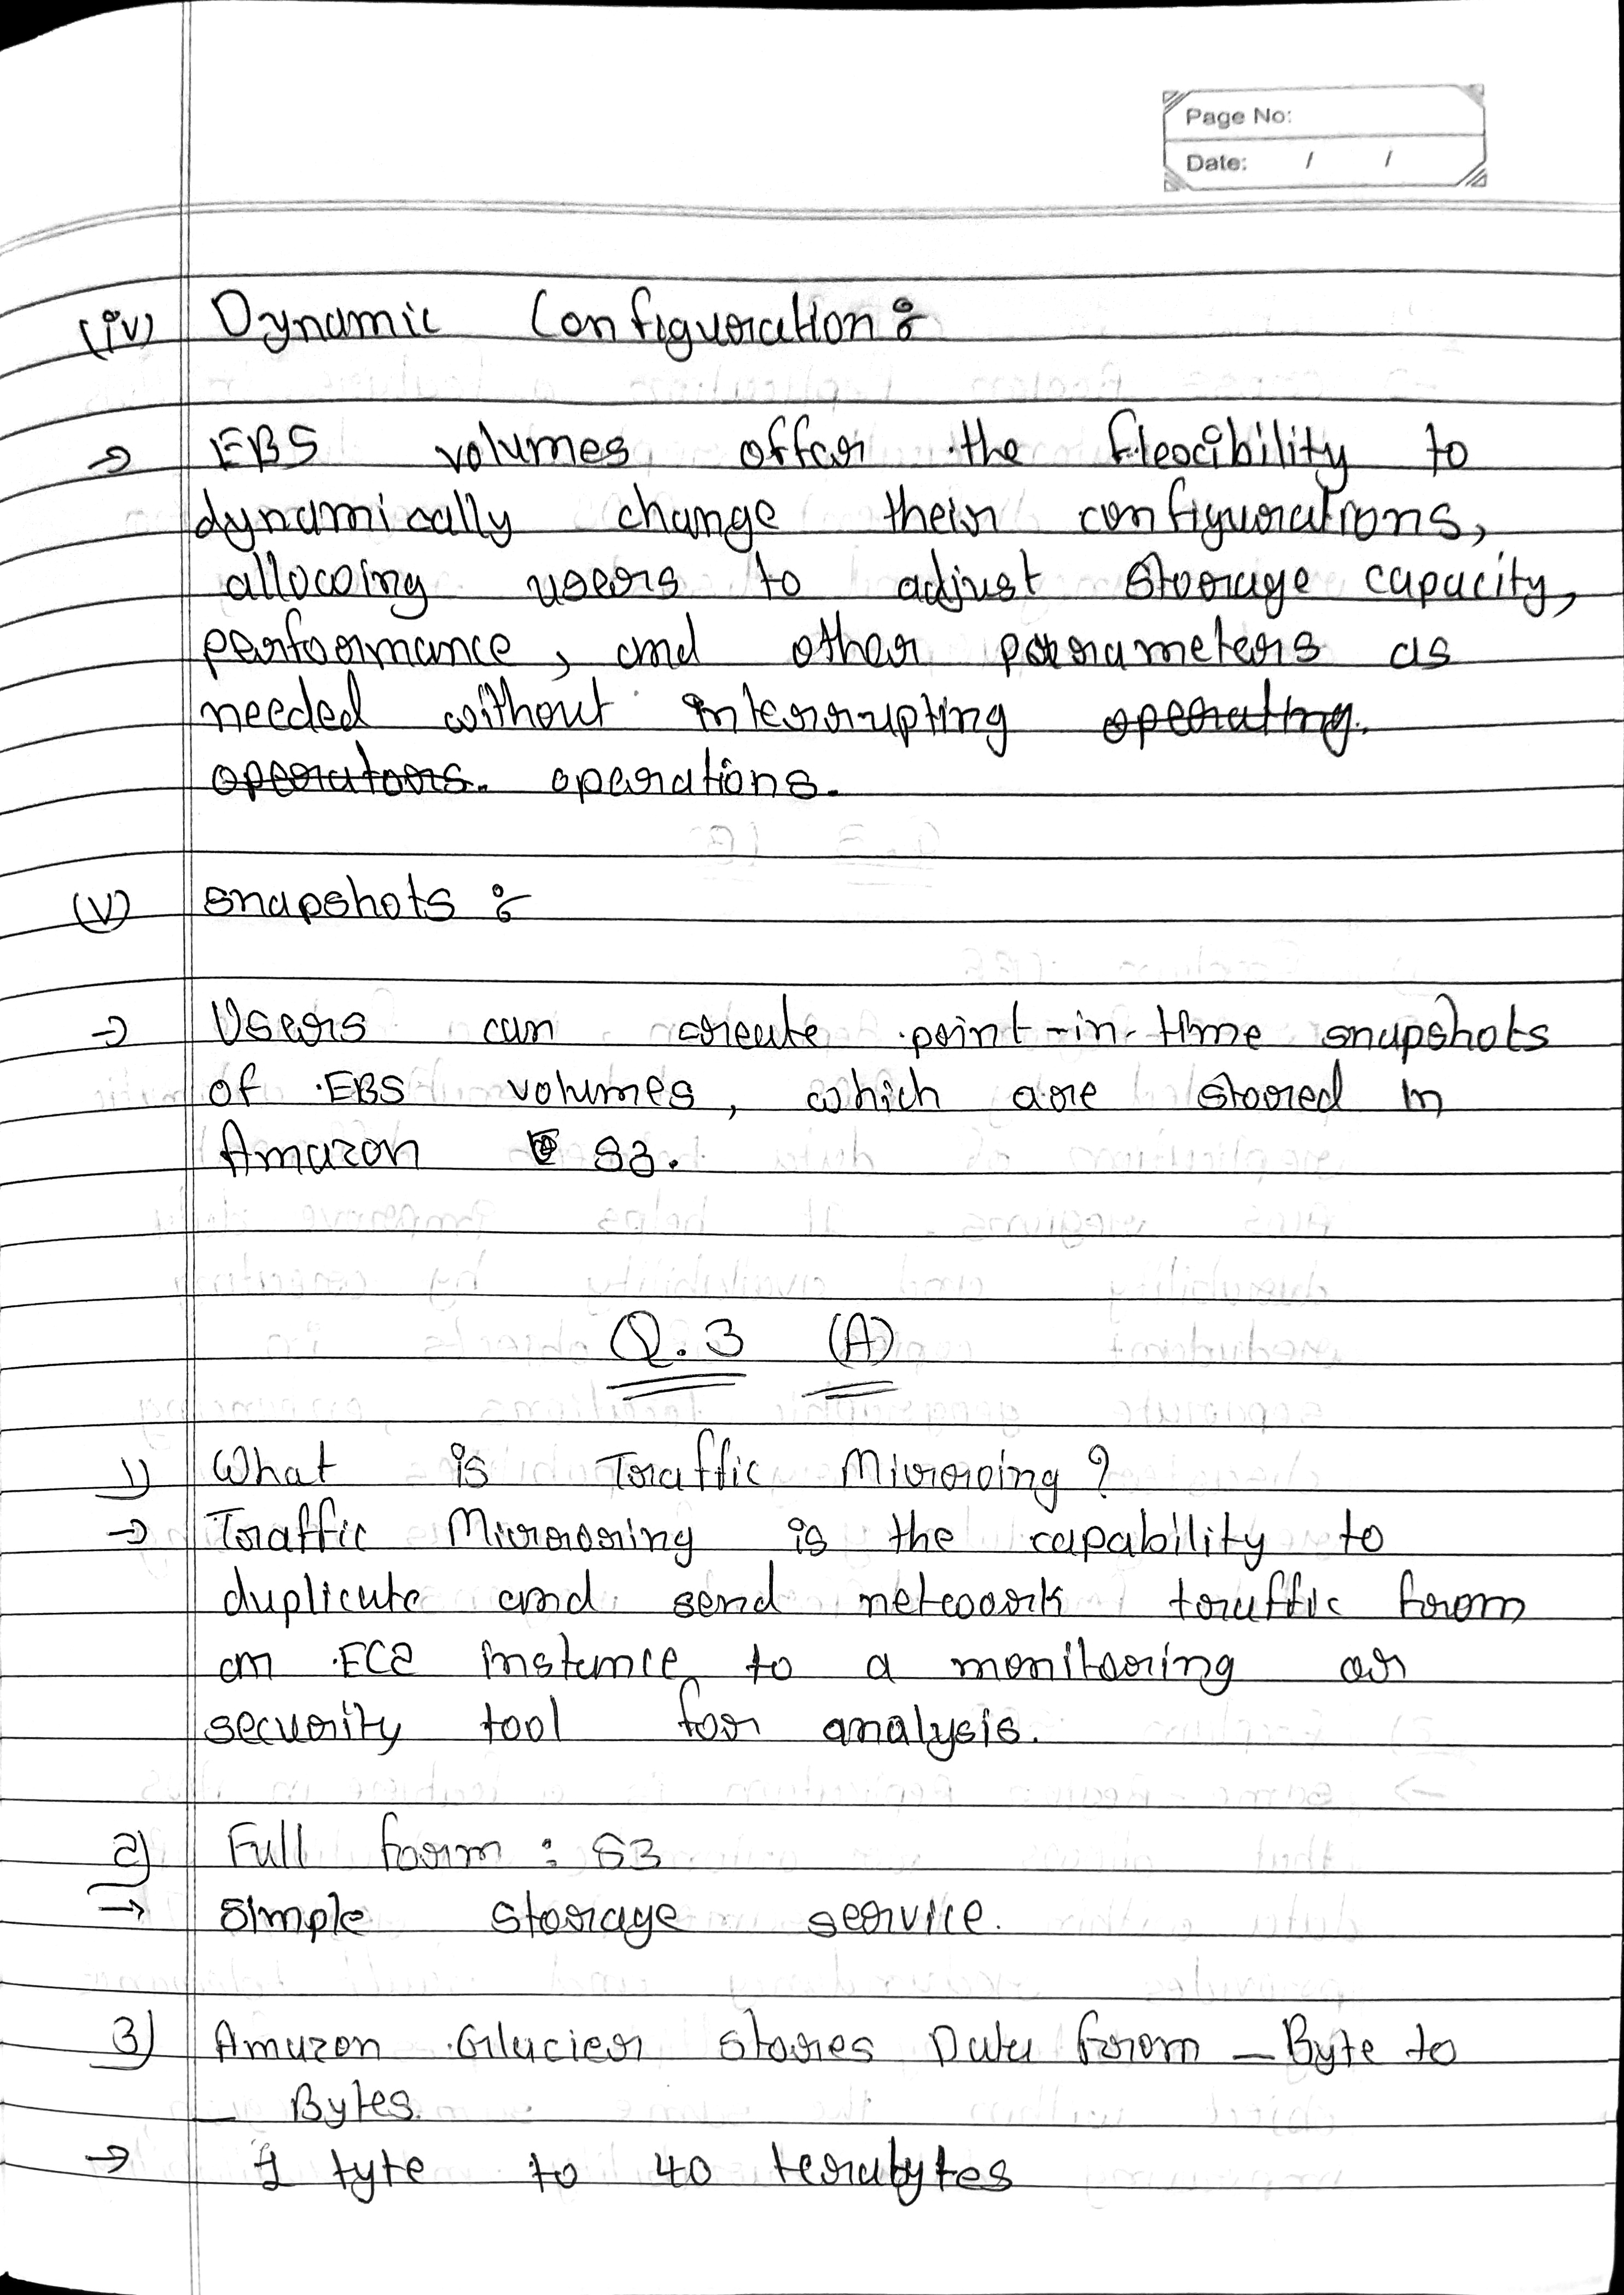 Page No:
Date: / /
(iv) Dynamic Configuration :-
→ EBS volumes offer the flexibility to
dynamically change their configurations,
allowing users to adjust storage capacity,
performance, and other parameters as
needed without interrupting operating.
operators. operations.
(v) snapshots :-
→ Users can create point-in-time snapshots
of EBS volumes, which are stored in
Amazon S3.
Q.3 (A)
1) What is Traffic Mirroring?
→ Traffic Mirroring is the capability to
duplicate and send network traffic from
an EC2 instance to a monitoring or
security tool for analysis.
2) Full form : S3
→ Simple storage service.
3) Amazon Glacier stores Data from _ Byte to
_ Bytes.
→ 1 tyte to 40 terabytes